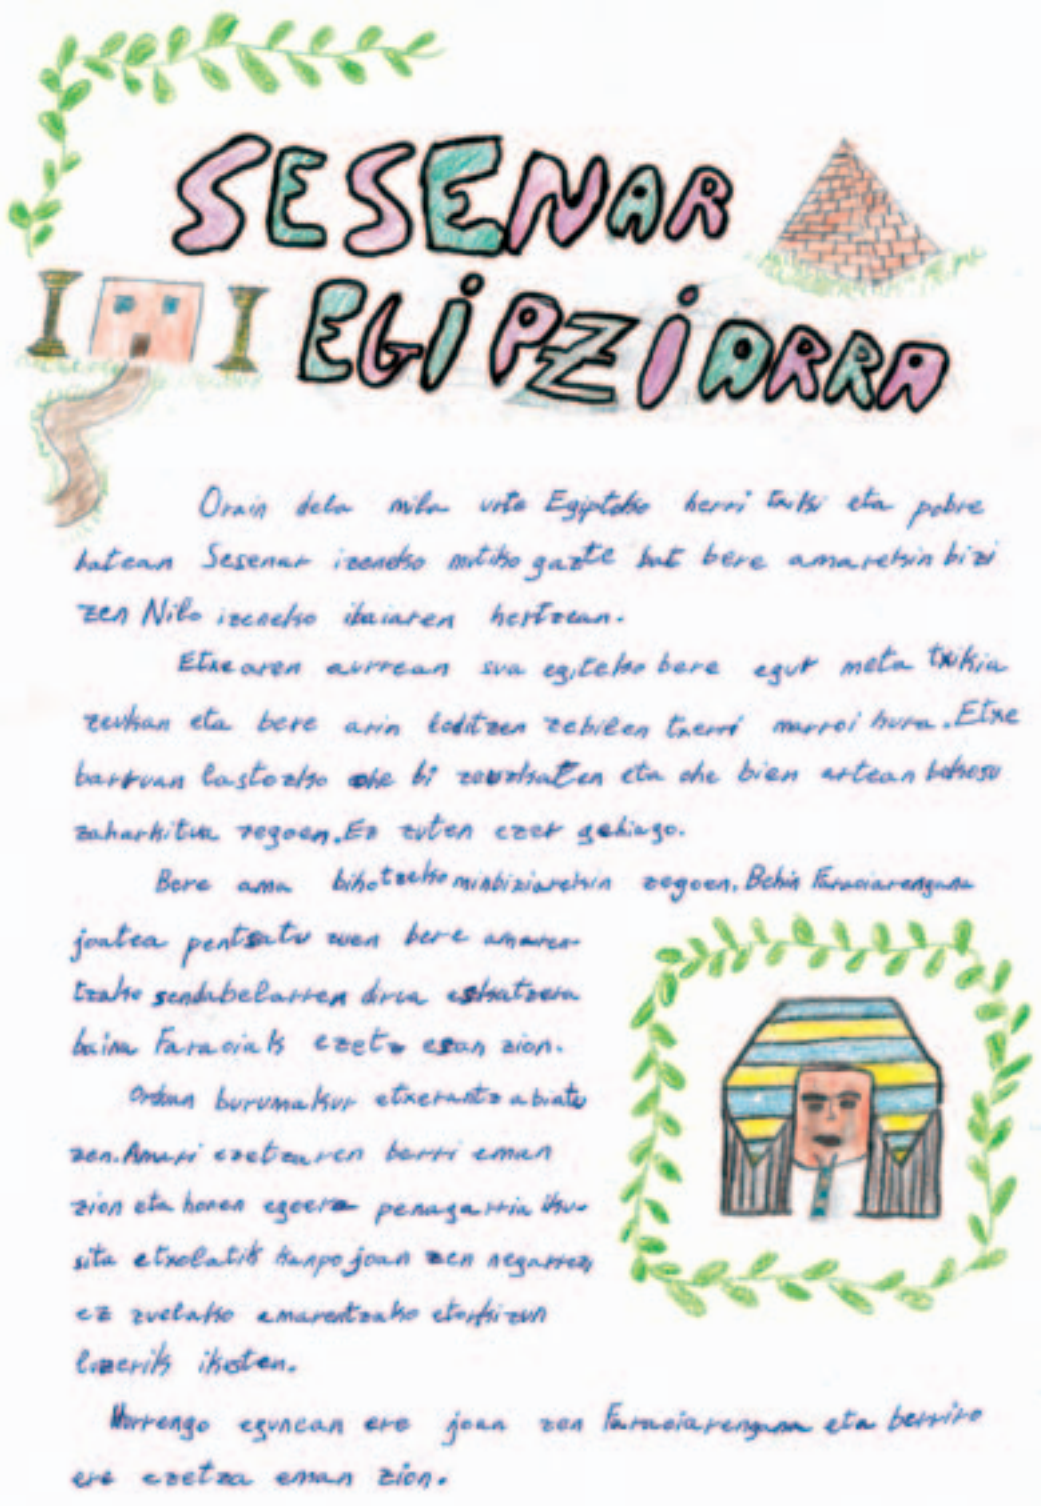 SESENAR
EGIPZIARRA
Orain dela mila urte Egiptoko herri txiki eta pobre
batean Sesenar izeneko mutiko gazte bat bere amarekin bizi
zen Nilo izeneko ibaiaren hertzean.
Etxearen aurrean sua egiteko bere egur meta txikia
zeukan eta bere arin loditzen zebilen txerri marroi hura. Etxe
barruan lastozko ohe bi zeuzkaten eta ohe bien artean
zaharkitua zegoen. Ez zuten ezer gehiago.
Bere ama bihotzeko minbiziarekin zegoen. Behin Faraoiarengana
joatea pentsatu zuen bere amaren-
tzako sendabelarren dirua eskatzera
baina Faraoiak ezetz esan zion.
Orduan burumakur etxerantz abiatu
zen. Amari ezetzaren berri eman
zion eta honen egoera penagarria iku-
sita etxolatik kanpo joan zen negarrez
ez zuelako amarentzako etorkizun
luzerik ikusten.
Hurrengo egunean ere joan zen Faraoiarengana eta berriro
ere ezetza eman zion.